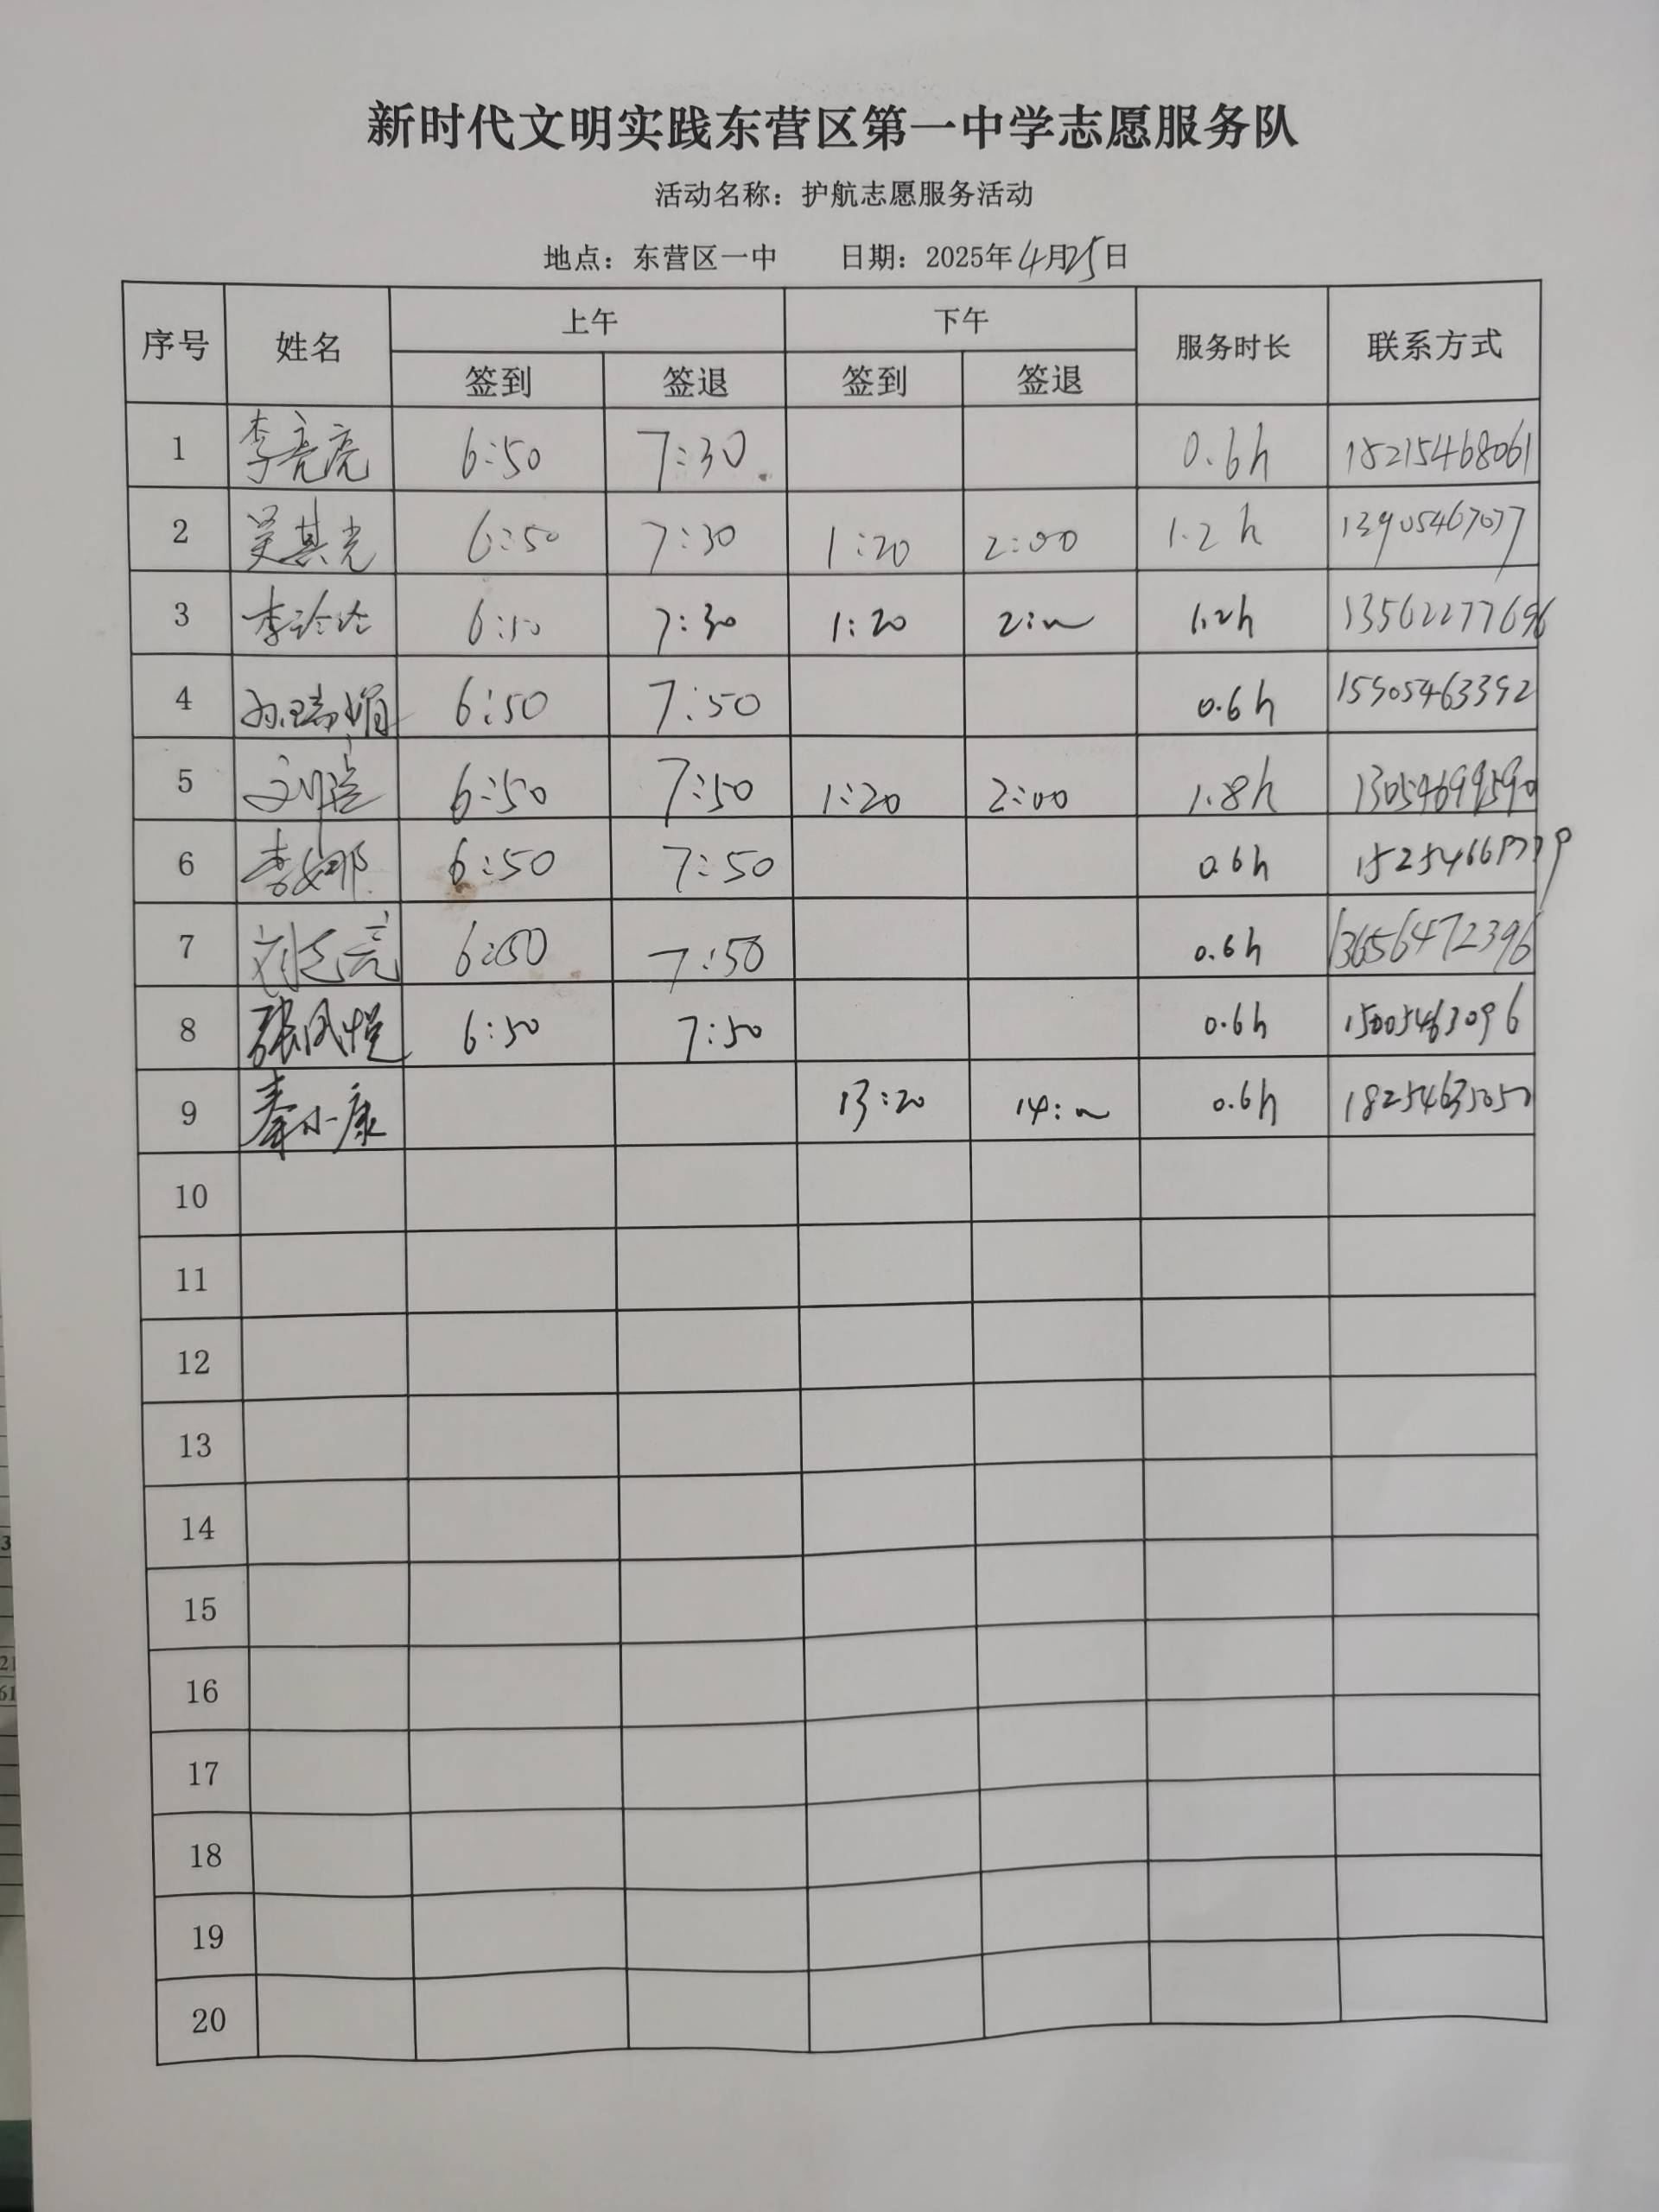 新时代文明实践东营区第一中学志愿服务队
活动名称：护航志愿服务活动
地点：东营区一中 日期：2025年4月25日
序号 姓名 上午 下午 服务时长 联系方式
签到 签退 签到 签退
1 李亮亮 6:50 7:30 0.6h 15215468061
2 吴其光 6:50 7:30 1:20 2:00 1.2h 13905467077
3 7:30 1:20 1.2h 13562277696
4 孙瑞娟 6:50 7:50 0.6h 15905463392
5 6:50 7:50 1:20 2:00 1.8h 13054699590
6 李娜 6:50 7:50 0.6h
7 刘志亮 6:50 7:50 0.6h 13656472396
8 张凤悦 6:50 7:50 0.6h 15005463096
9 秦小康 13:20 0.6h
10
11
12
13
14
15
16
17
18
19
20
3
21
61